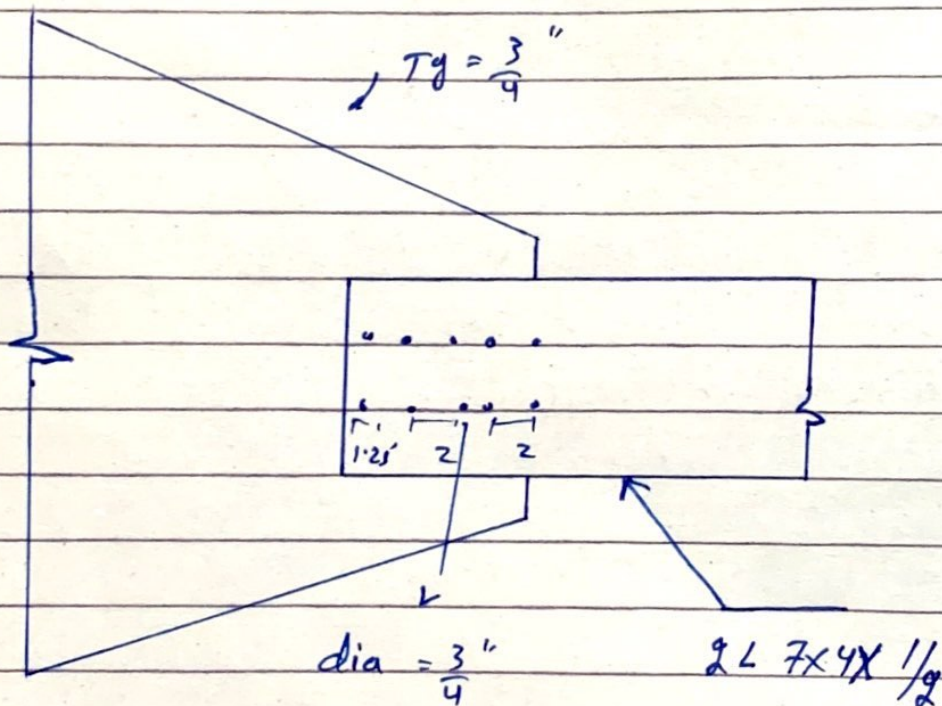 Tg = 3/4 "
1.25 2 2
dia = 3/4 "
2L 7x4x 1/2